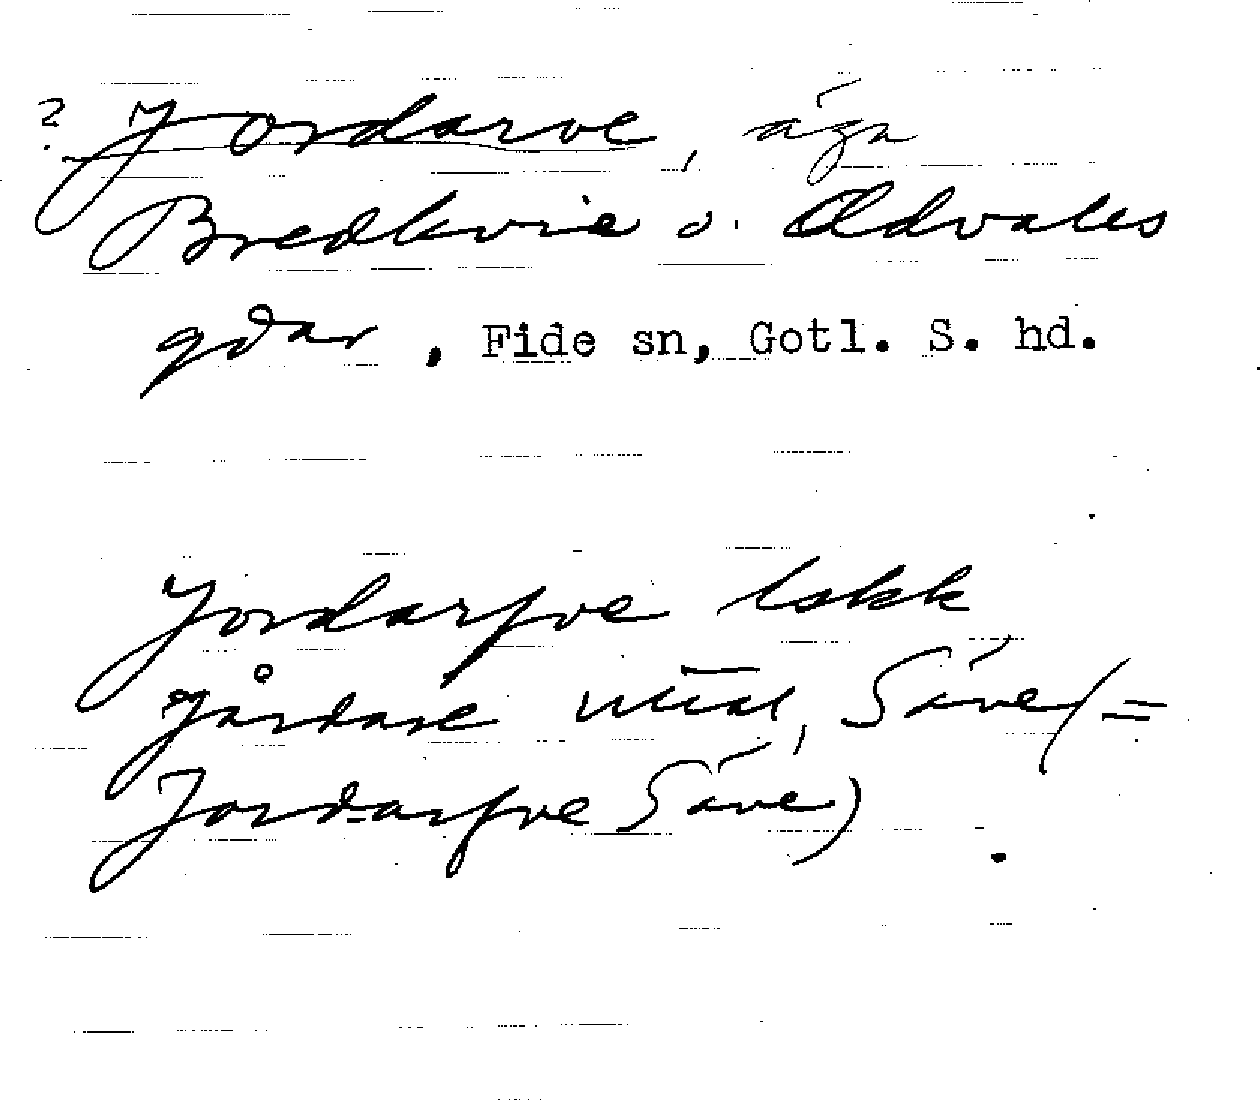 ? Jordarve, äga
Bredkvie o. Ödvalls
gdar, Fide sn, Gotl. S. hd.
Jordarfve
gårdar Säve (=
Jordarfve Säve)